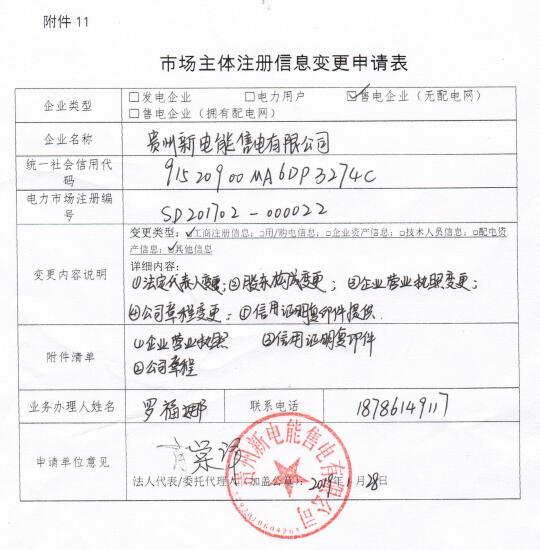 附件 11
市场主体注册信息变更申请表
企业类型
□发电企业 □电力用户 ☑售电企业（无配电网）
□售电企业（拥有配电网）
企业名称
贵州新电能售电有限公司
统一社会信用代
码
91520900MA6DP3274C
电力市场注册编
号
SD201702-000022
变更内容说明
变更类型：☑工商注册信息；□用/购电信息；□企业资产信息；□技术人员信息；□配电资
产信息；☑其他信息
详细内容：
①法定代表人变更；②股东构成变更；③企业营业执照变更；
④公司章程变更；⑤信用证明复印件提供.
附件清单
①企业营业执照 ③信用证明复印件
②公司章程
业务办理人姓名
罗福娜
联系电话
18786149117
申请单位意见
法人代表/委托代理人（加盖公章）：2019年1月28日
贵州新电能售电有限公司